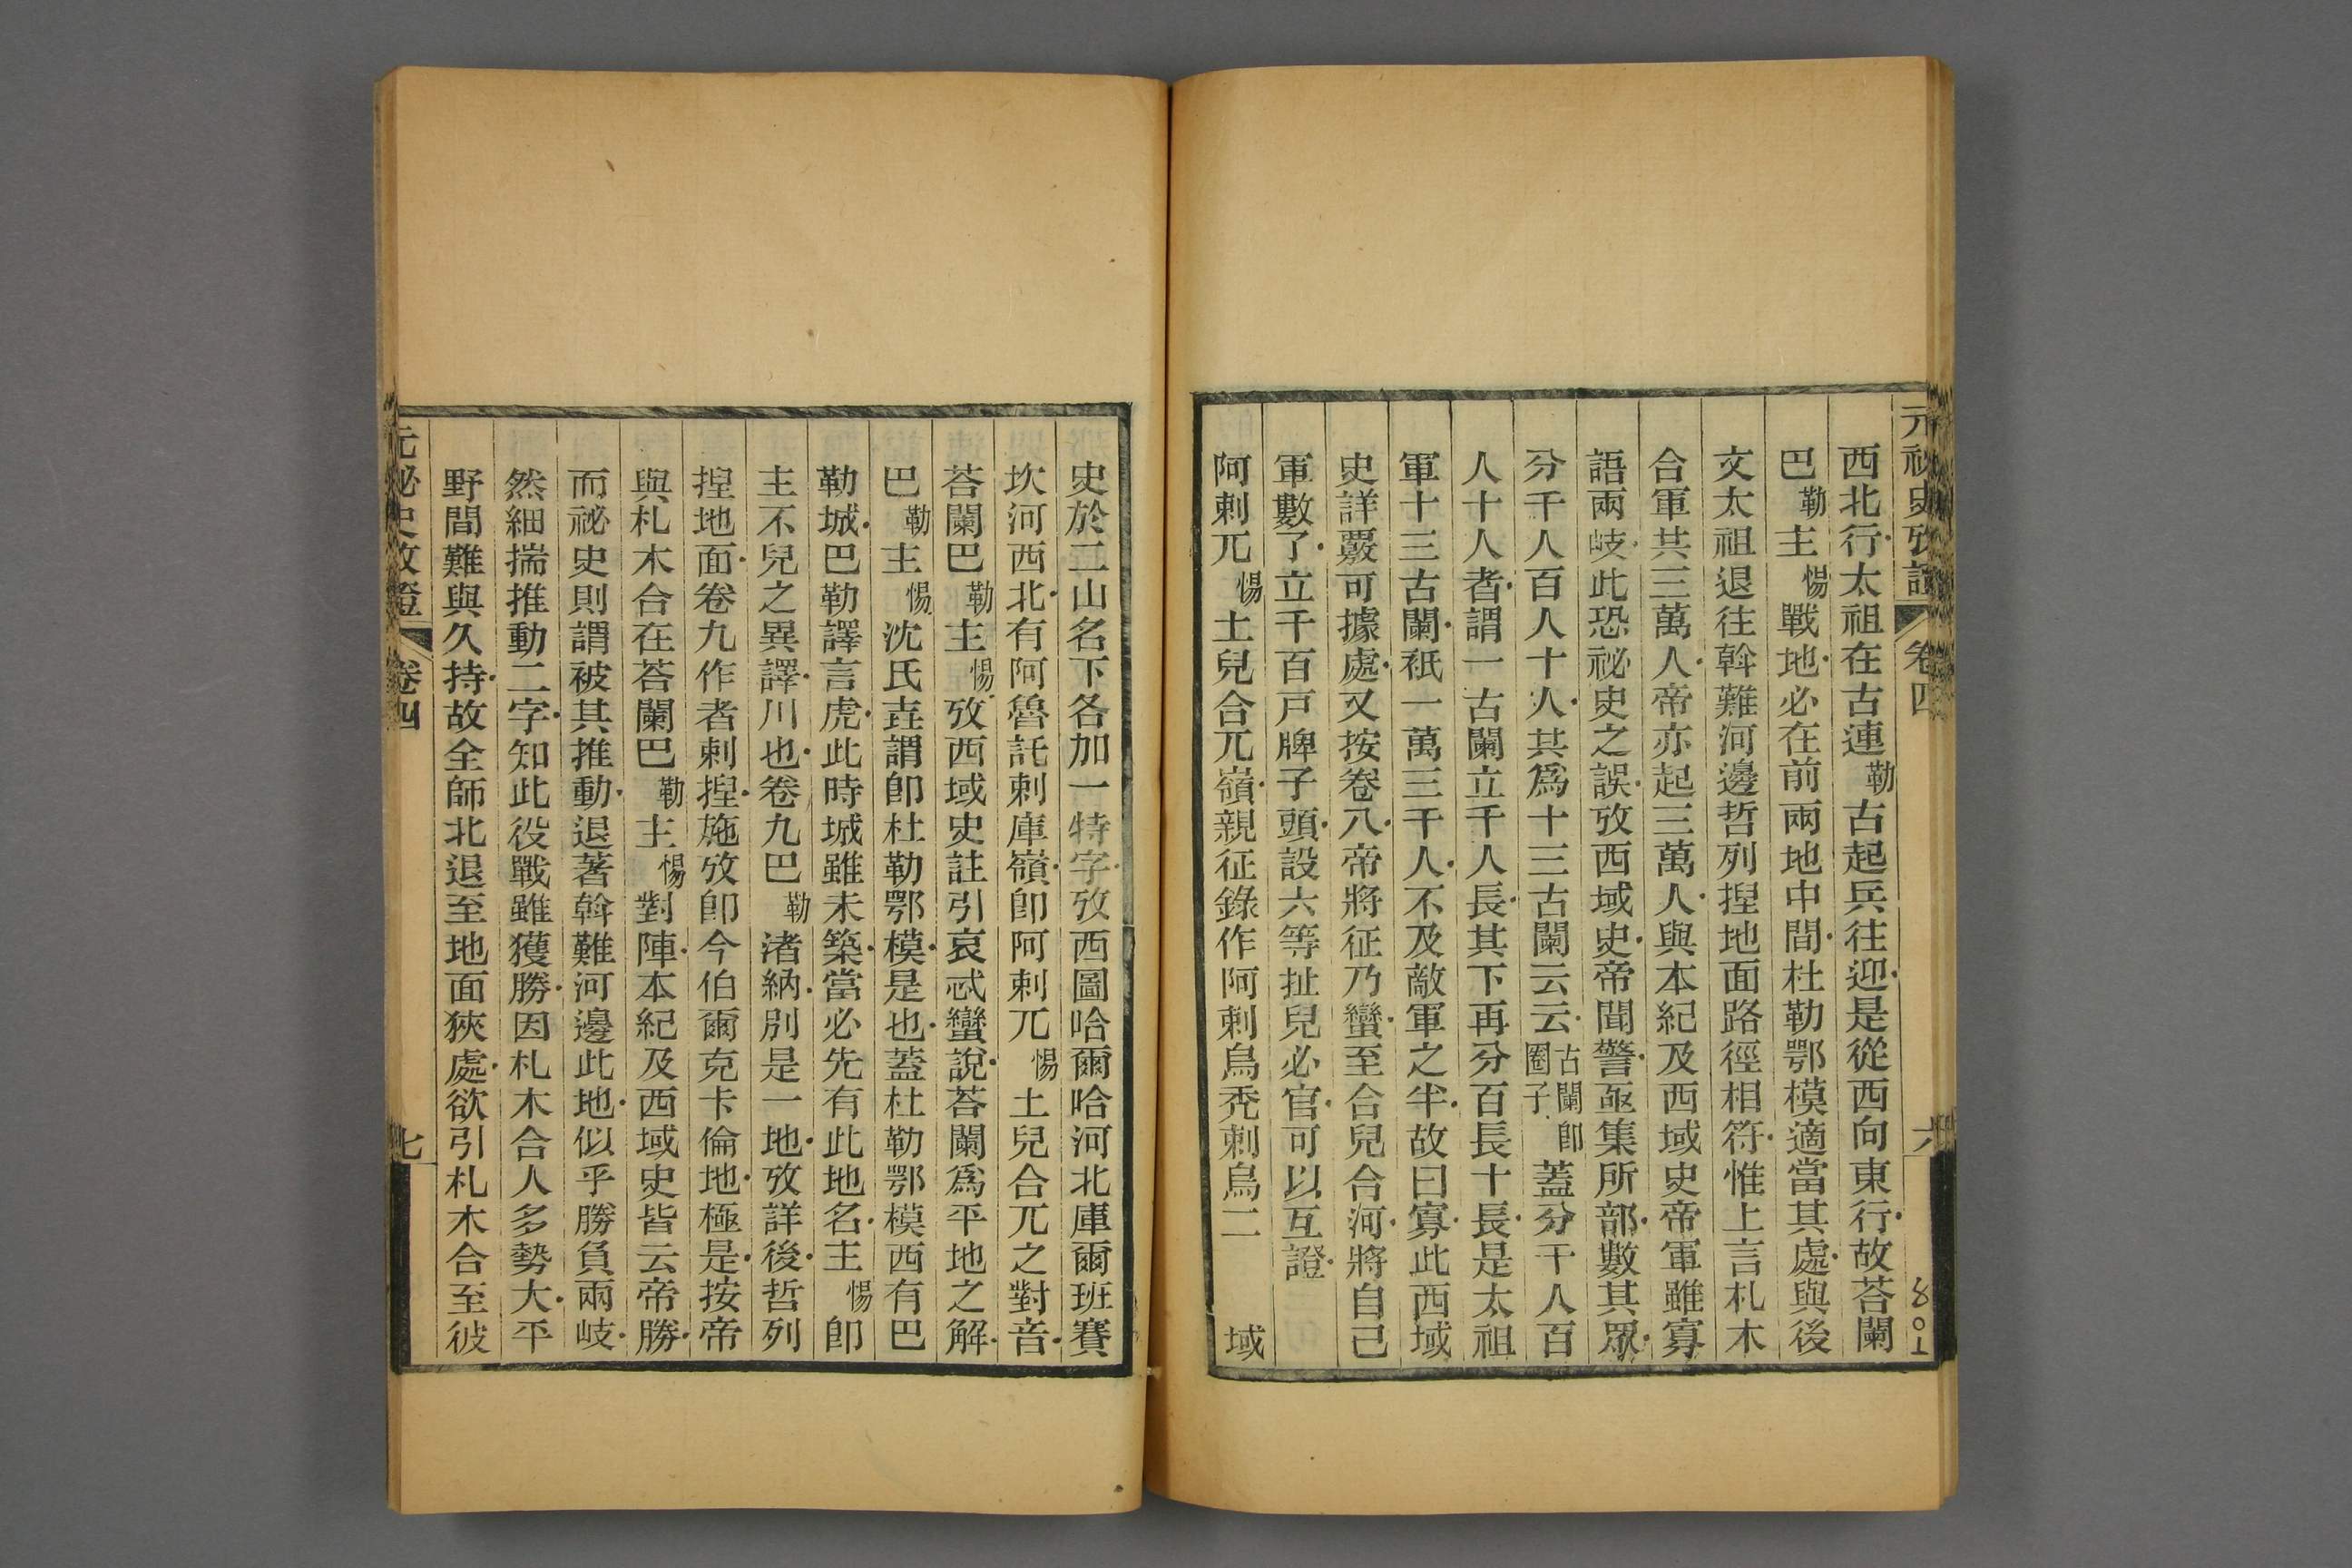 元祕史攷證 卷四 六 8〇1
西北行太祖在古連勒古起兵往迎是從西向東行故荅闌
巴勒主惕戰地必在前兩地中間杜勒鄂模適當其處與後
文太祖退往斡難河邊哲列揑地面路徑相符惟上言札木
合軍共三萬人帝亦起三萬人與本紀及西域史帝軍雖寡
語兩岐此恐祕史之誤攷西域史帝聞警亟集所部數其眾
分千人百人十人其爲十三古闌云云古闌卽圈子蓋分千人百
人十人者謂一古闌立千人長其下再分百長十長是太祖
軍十三古闌祇一萬三千人不及敵軍之半故曰寡此西域
史詳覈可據處又按卷八帝將征乃蠻至合兒合河將自己
軍數了立千百戸牌子頭設六等扯兒必官可以互證
阿剌兀惕土兒合兀嶺親征錄作阿剌烏禿剌烏二 域
史於二山名下各加一特字攷西圖哈爾哈河北庫爾班賽
坎河西北有阿魯託剌庫嶺卽阿剌兀惕土兒合兀之對音
荅闌巴勒主惕攷西域史註引哀忒蠻說荅闌爲平地之解
巴勒主惕沈氏垚謂卽杜勒鄂模是也蓋杜勒鄂模西有巴
勒城巴勒譯言虎此時城雖未築當必先有此地名主惕卽
主不兒之異譯川也卷九巴勒渚納別是一地攷詳後哲列
揑地面卷九作者剌揑施攷卽今伯爾克卡倫地極是按帝
與札木合在荅闌巴勒主惕對陣本紀及西域史皆云帝勝
而祕史則謂被其推動退著斡難河邊此地似乎勝負兩岐
然細揣推動二字知此役戰雖獲勝因札木合人多勢大平
野間難與久持故全師北退至地面狹處欲引札木合至彼
元祕史攷證 卷四 七